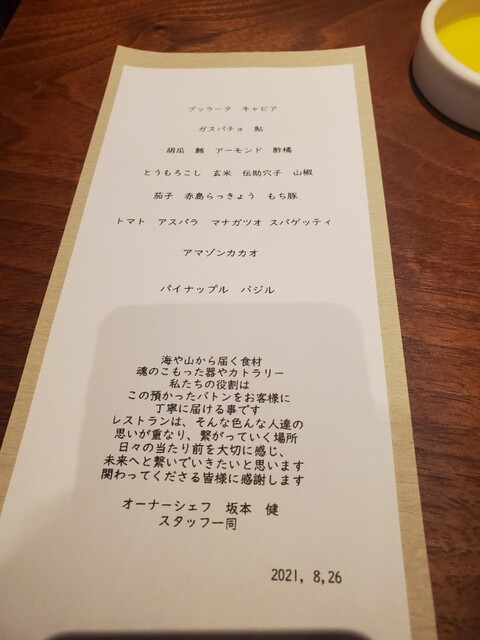 ブッラータ　キャビア
ガスパチョ　鮎
胡瓜　鱧　アーモンド　酢橘
とうもろこし　玄米　伝助穴子　山椒
茄子　赤島らっきょう　もち豚
トマト　アスパラ　マナガツオ　スパゲッティ
アマゾンカカオ
パイナップル　バジル
海や山から届く食材
魂のこもった器やカトラリー
私たちの役割は
この預かったバトンをお客様に
丁寧に届ける事です
レストランは、そんな色んな人達の
思いが重なり、繋がっていく場所
日々の当たり前を大切に感じ、
未来へと繋いでいきたいと思います
関わってくださる皆様に感謝します
オーナーシェフ　坂本　健
スタッフ一同
2021, 8,26